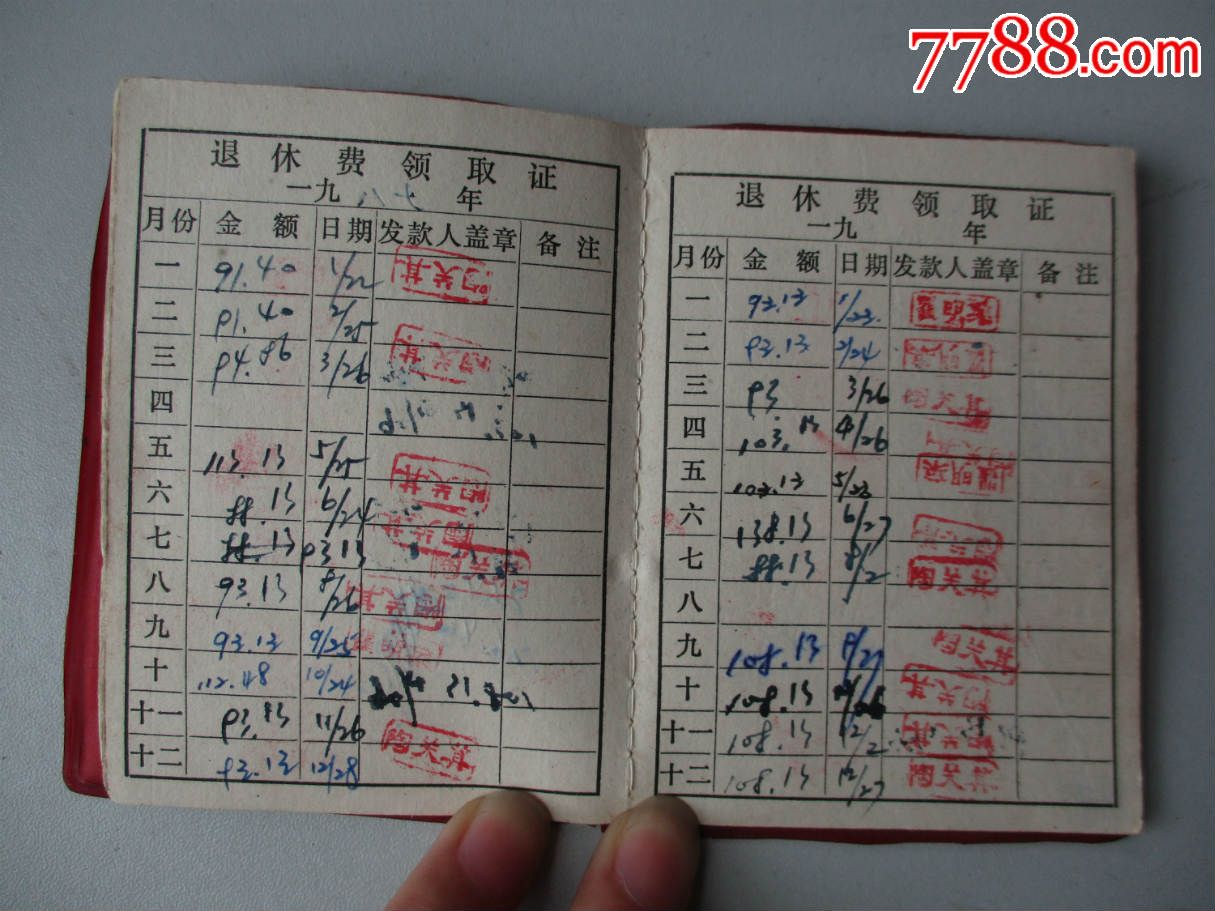 7788.com
退休费领取证
一九八七年
月份 金额 日期 发款人盖章 备注
一 91.40 1/22
二 91.40 2/25
三 94.86 3/26
四
五 113.13 5/25
六 88.13 6/24
七 88.13 93.13
八 93.13 8/26
九 93.13 9/25
十 112.48 10/24
十一 93.13 11/26
十二 93.13 12/28
退休费领取证
一九 年
月份 金额 日期 发款人盖章 备注
一 93.13 1/23
二 93.13 2/24
三 93 3/26
四 103.13 4/26
五 103.13 5/23
六 138.13 6/27
七 88.13 8/2
八
九 108.13 9/27
十 108.13
十一 108.13 12/2
十二 108.13 12/27